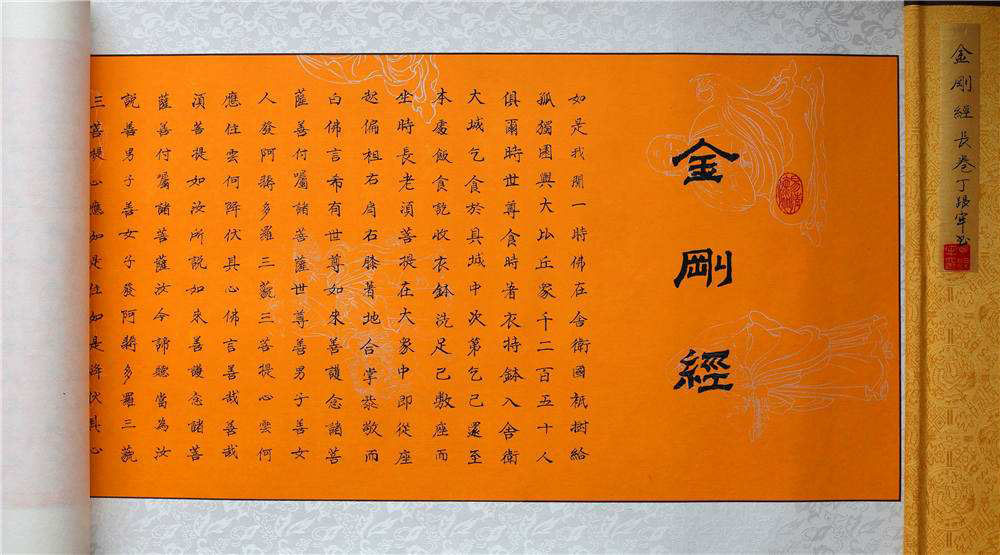 金剛經長卷丁
金剛經
如是我聞一時佛在舍衛國祇樹給
孤獨園與大比丘眾千二百五十人
俱爾時世尊食時著衣持鉢入舍衛
大城乞食於其城中次第乞已還至
本處飯食訖收衣鉢洗足已敷座而
坐時長老須菩提在大眾中即從座
起偏袒右肩右膝著地合掌恭敬而
白佛言希有世尊如來善護念諸菩
薩善付囑諸菩薩世尊善男子善女
人發阿耨多羅三藐三菩提心雲何
應住雲何降伏其心佛言善哉善哉
須菩提如汝所說如來善護念諸菩
薩善付囑諸菩薩汝今諦聽當為汝
說善男子善女子發阿耨多羅三藐
三菩提心應如是住如是降伏其心